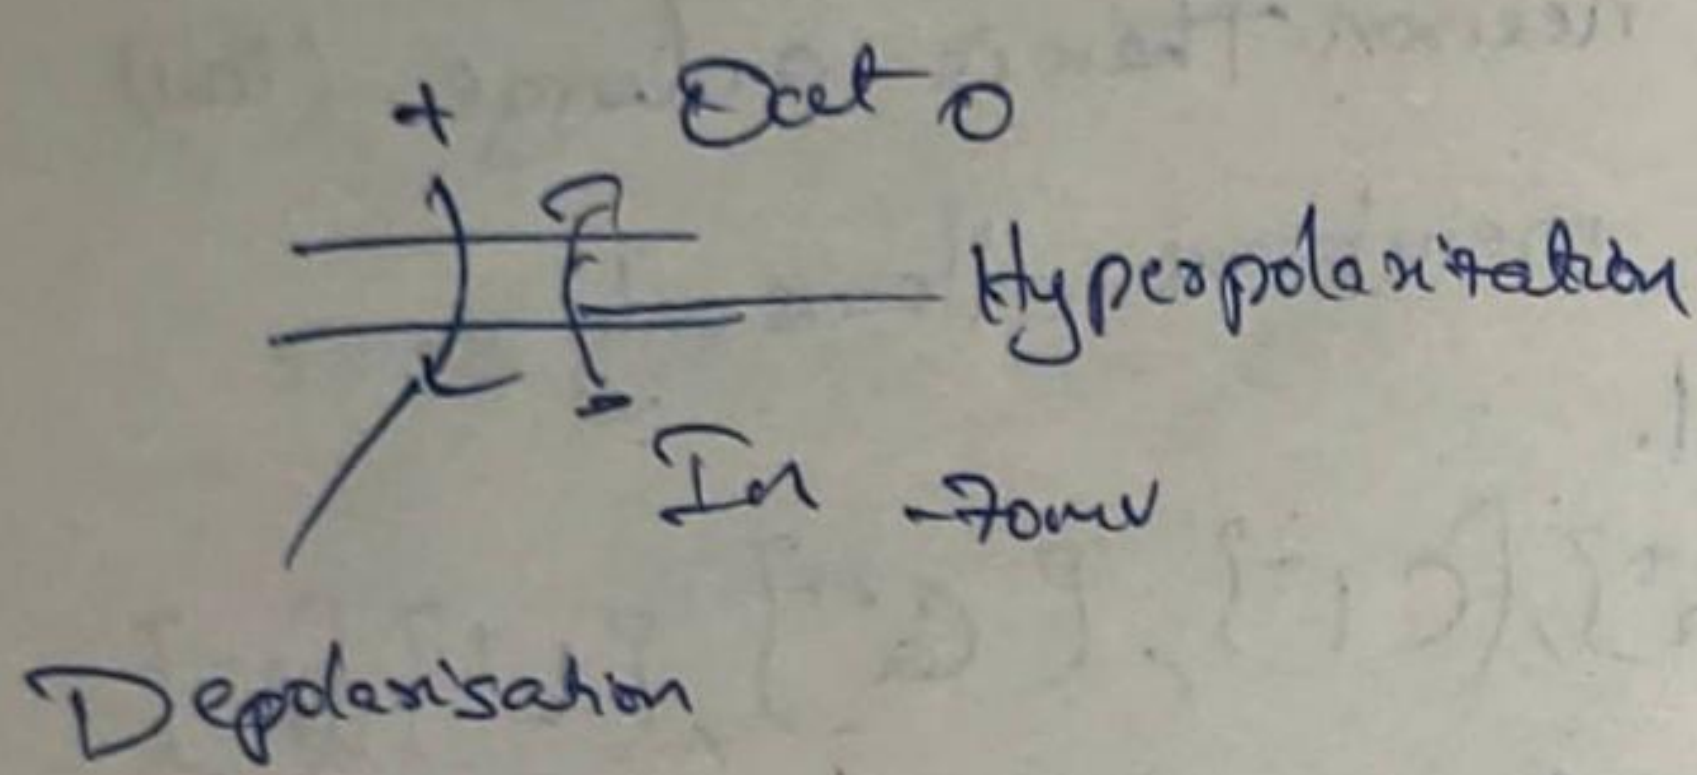 + Out 0
Hyperpolarization
In -70mv
Depolarisation